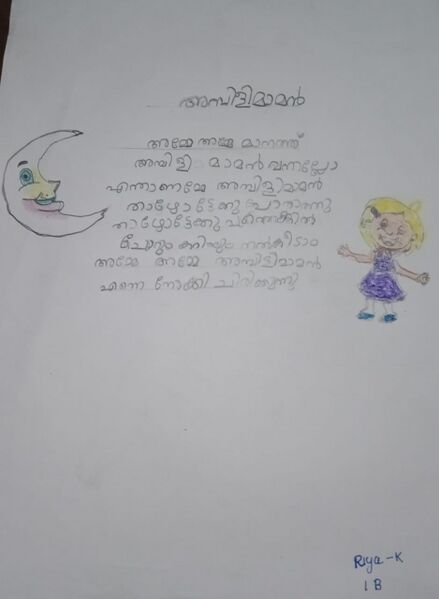 അമ്പിളിമാമൻ
അമ്മേ അമ്മേ മാനത്ത്
അമ്പിളി മാമൻ വന്നല്ലോ
എന്താണമ്മേ അമ്പിളിമാമൻ
താഴോട്ടേക്കു പോരാത്തു
താഴോട്ടേക്കു വന്നെങ്കിൽ
ചോറും കറിയും നൽകീടാം
അമ്മേ അമ്മേ അമ്പിളിമാമൻ
എന്നെ നോക്കി ചിരിക്കുന്നു
Riya-K
1 B